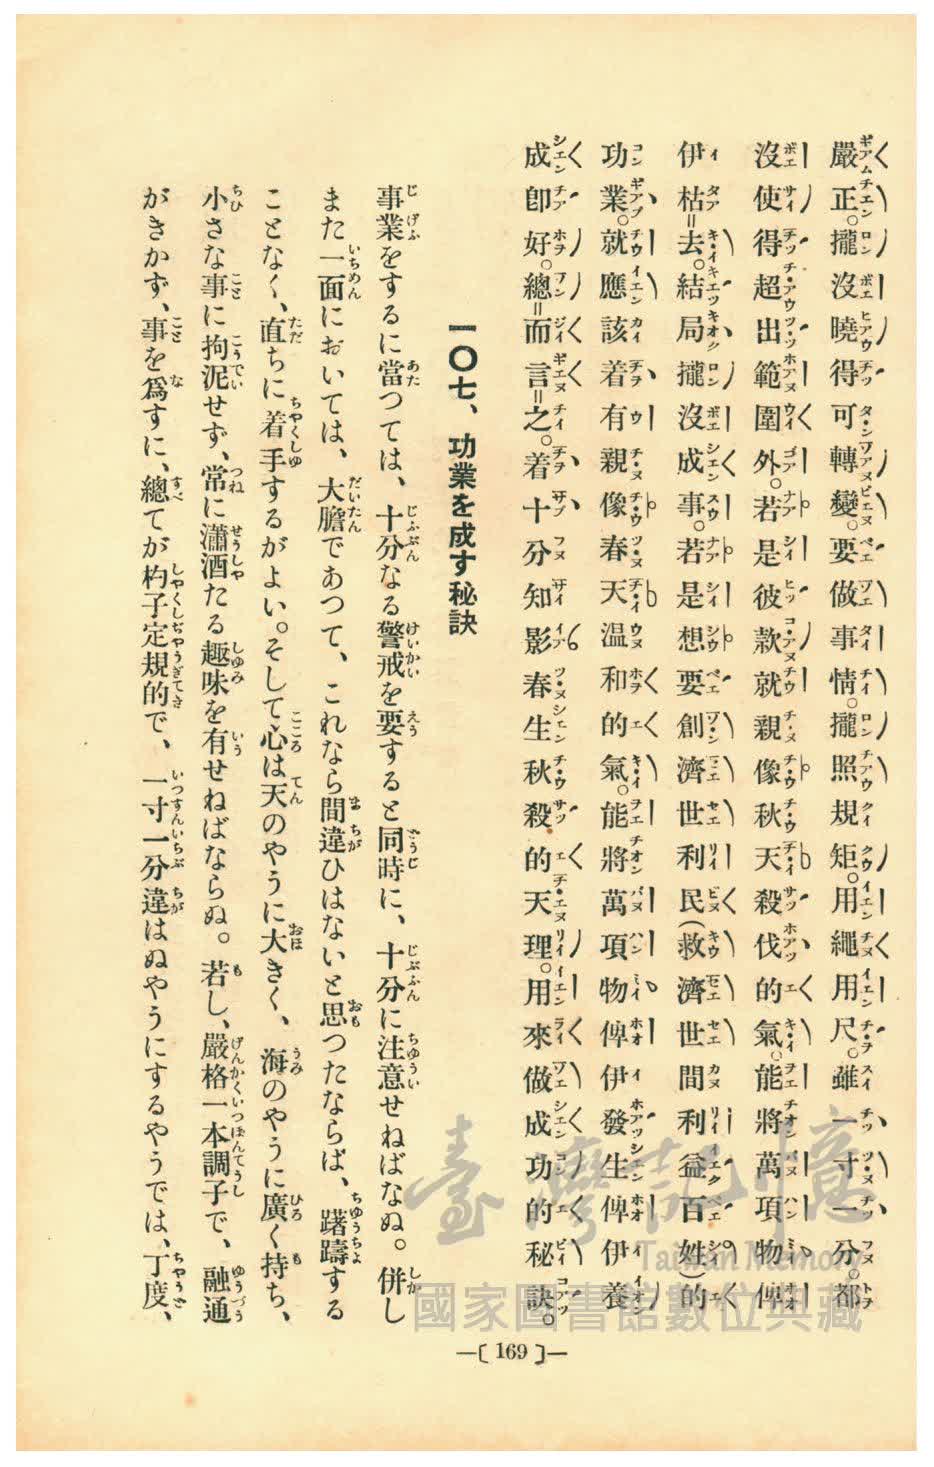 嚴正。攏沒曉得可轉變。要做事情。攏照規矩。用繩用尺。雖一寸一分。都
沒使得超出範圍外。若是彼款就親像秋天殺伐的氣。能將萬項物俾
伊枯=去。結局攏沒成事。若是想要創濟世利民(救濟世間利益百姓)的
功業。就應該着有親像春天溫和的氣。能將萬項物俾伊發生俾伊養
成卽好。總=而言=之。着十分知影春生秋殺的天理。用來做成功的秘訣。
一〇七、功業を成す秘訣
事業をするに當つては、十分なる警戒を要すると同時に、十分に注意せねばなぬ。併し
また一面においては、大膽であつて、これなら間違ひはないと思つたならば、躇躊する
ことなく、直ちに着手するがよい。そして心は天のやうに大きく、海のやうに廣く持ち、
小さな事に拘泥せず、常に瀟洒たる趣味を有せねばならぬ。若し、嚴格一本調子で、融通
がきかず、事を爲すに、總てが杓子定規的で、一寸一分違はぬやうにするやうでは、丁度、
—〔 169 〕—
臺灣記憶
Taiwan Memory
國家圖書館數位典藏